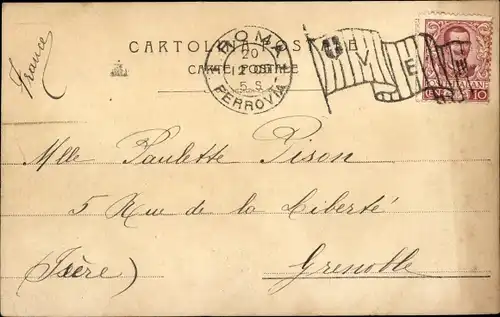 France
CARTOLINA POSTALE
CARTE POSTALE
ROMA
20
5 S
FERROVIA
V E
10
Mlle Paulette Pison
5 Rue de la Liberté
(Isère) Grenoble